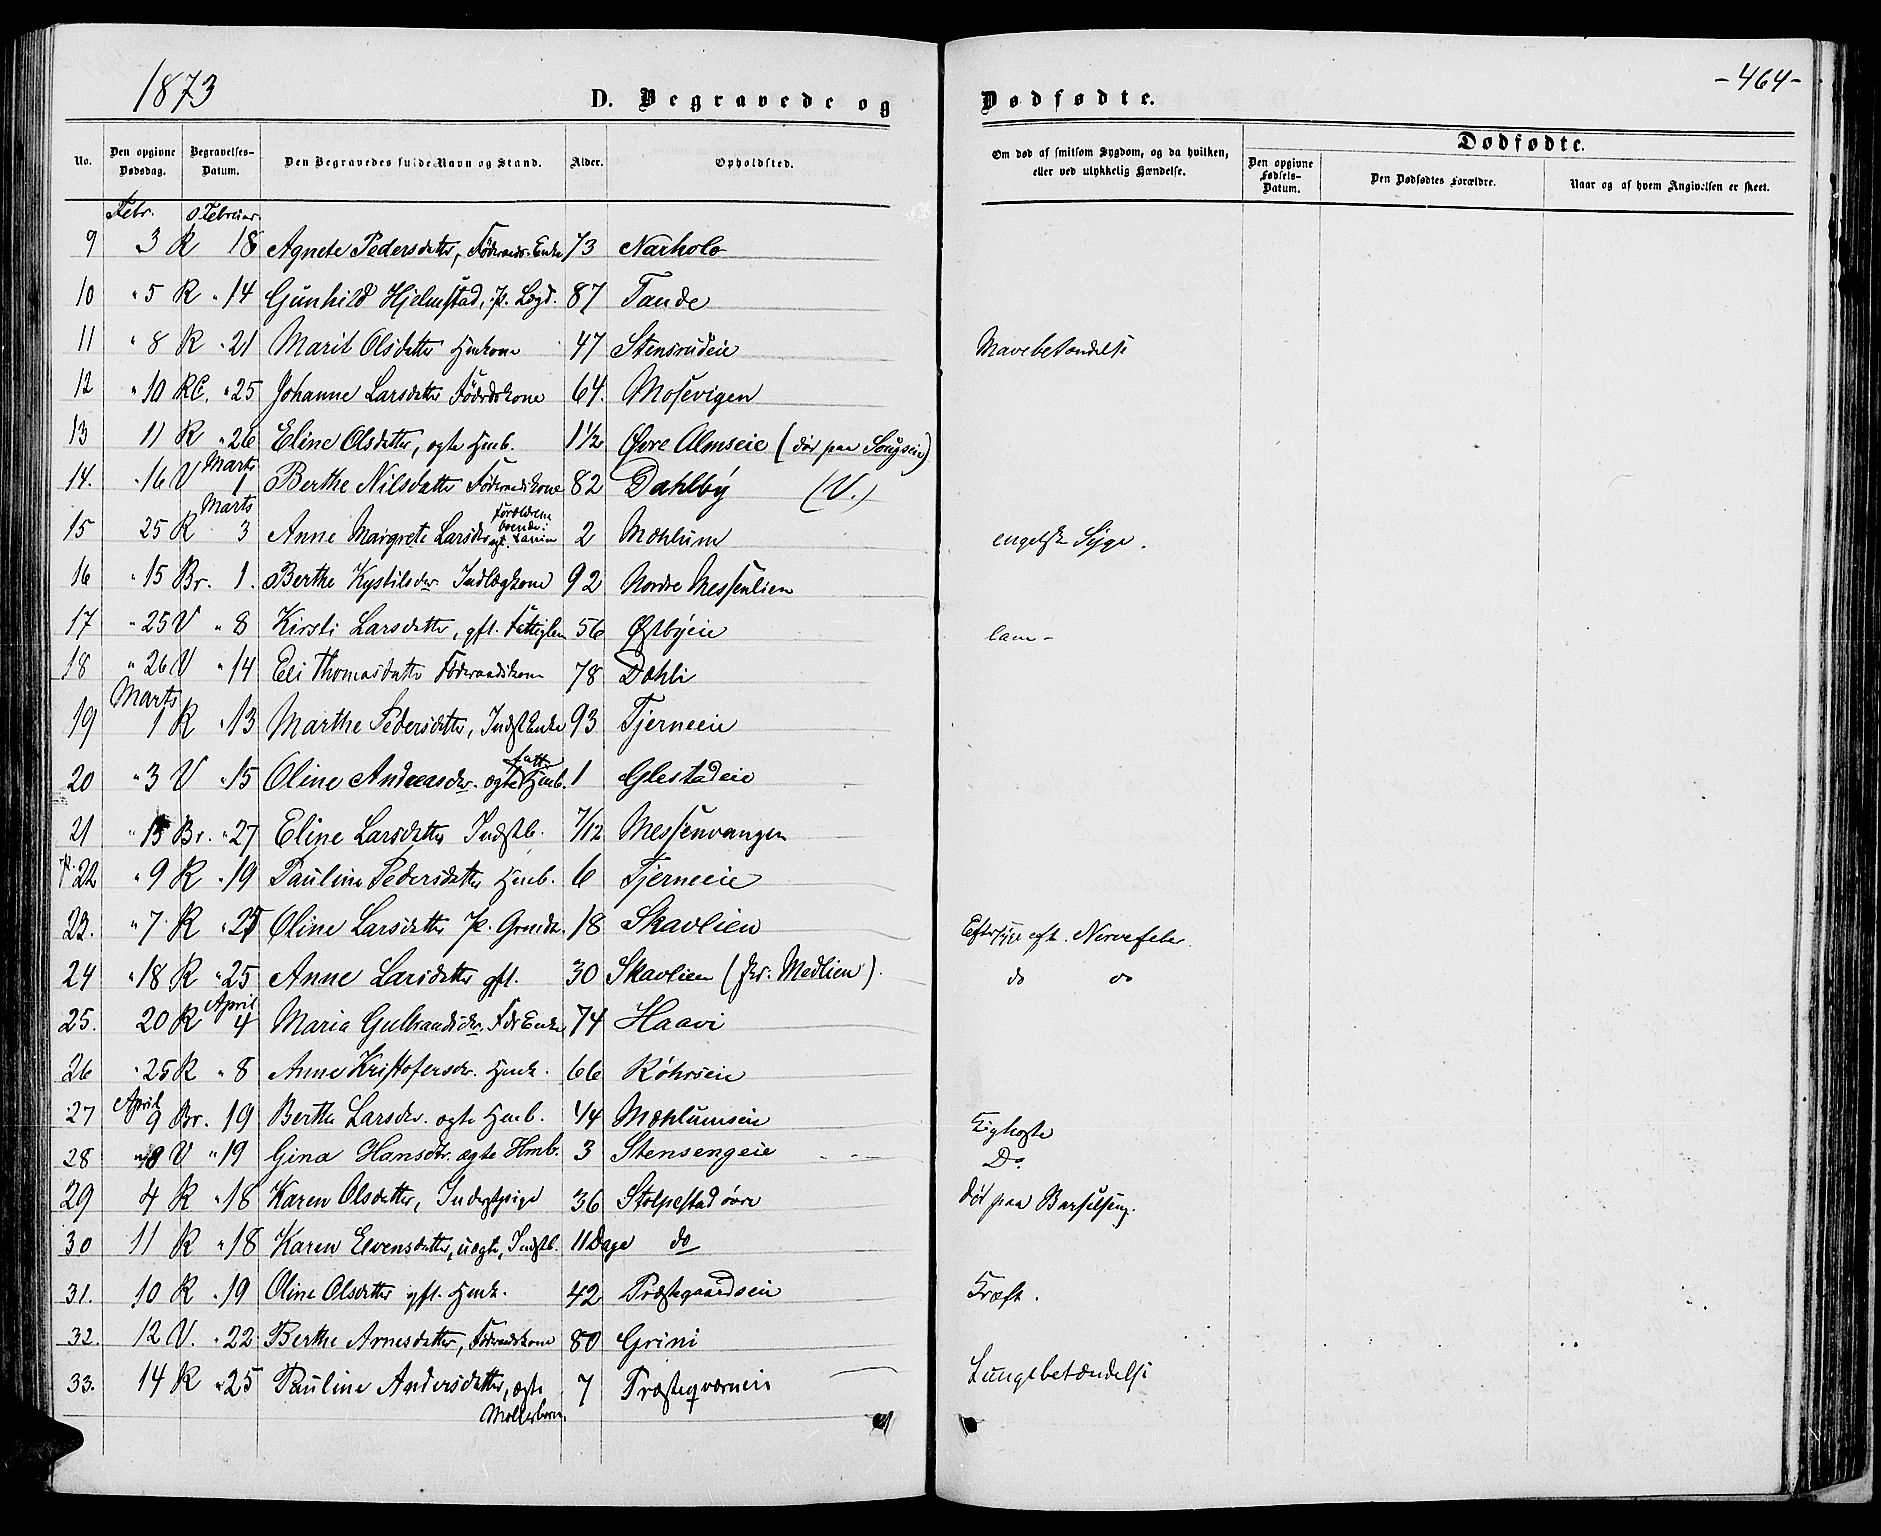 1873
-464-
D. Begravede og
Dødfødte.
No.
Den opgivne Dødsdag.
Begravelses-Datum.
Den Begravedes fulde Navn og Stand.
Alder.
Opholdsted.
Om død af smitsom Sygdom, og da hvilken, eller ved ulykkelig Hændelse.
Dødfødte.
Den opgivne Fødsels-Datum.
Den Dødfødtes Forældre.
Naar og af hvem Angivelsen er skeet.
Febr. Februar
9 3 R 18 Agnete Pedersdatter, Föderaads-Enke 73 Narholo
10 " 5 R " 14 Gunhild Hjelmstad, p. Lægd. 87 Tande
11 " 8 R " 21 Marit Olsdatter Huskone 47 Stensrudeie Mavebetændelse
12 " 10 RC. " 25 Johanne Larsdatter Föderdskone 64. Mosevigen
13 11 R " 26 Eline Olsdatter, ægte Hmb. 1 1/2 Øvre Almseie (död paa )
Marts
14. " 16 V 1 Berthe Nilsdatter Föderaadskone 82 Dahlby (V.)
Marts
15 25 R 3 Anne Margrete Larsdtr 2 Mæhlum engelsk Syge.
16 " 15 Br. 1. Berthe Kystilsdtr Indlægkone 92 Nordre Messenlien
17 " 25 V " 8 Kirsti Larsdatter, gft. Fattiglem 56 Østbyeie lam-
18 " 26 V " 14 Eli Thomasdatter Föderaadskone 78 Dæhli
Marts
19 1 R " 13 Marthe Pedersdatter, Indstenke 93 Tjerneeie
20 " 3 V " 15 Oline Andreasdtr. ægte Hmb. 1 Glestadeie
21 " 13 Br. " 27 Eline Larsdatter Indstb. 7/12 Messenvangen
22 " 9 R " 19 Pauline Pedersdatter Hmb. 6 Tjerneeie
23. " 7 R " 25 Oline Larsdatter p. Grmdb. 18 Skavlien Eftersyge eft. Nervefeber
24 " 18 R " 25 Anne Larsdatter gft. 30 Skavlien (fr. Medlien) do do
April
25. 20 R 4 Maria Gulbrandsdtr. FdrEnke 74 Haavi
26 " 25 R " 8 Anne Kristofersdtr. Hmk. 66 Röhrseie
April
27 9 Br. 19 Berthe Larsdtr. ægte Hmb. 1/4 Mæhlumseie Kighoste
28 10 V " 19 Gina Hansdtr. ægte Hmb. 3 Stensengeie Do
29 4 R " 18 Karen Olsdatter, Inderstpige 36 Stolpestad övre död paa Barselseng.
30 11 R " 18 Karen Evensdatter, uægte, Indstb. 11 Dage do
31. 10 R " 19 Oline Olsdatter gft. Hmk. 42 Præstegaardseie Kræft.
32. 12 V. " 22 Berthe Arnesdatter, Föderaadskone 80 Grini
33. 14 R " 25 Pauline Andersdatter, ægte 7 Præsteqværneie Lungebetændelse
Møllerbarn.